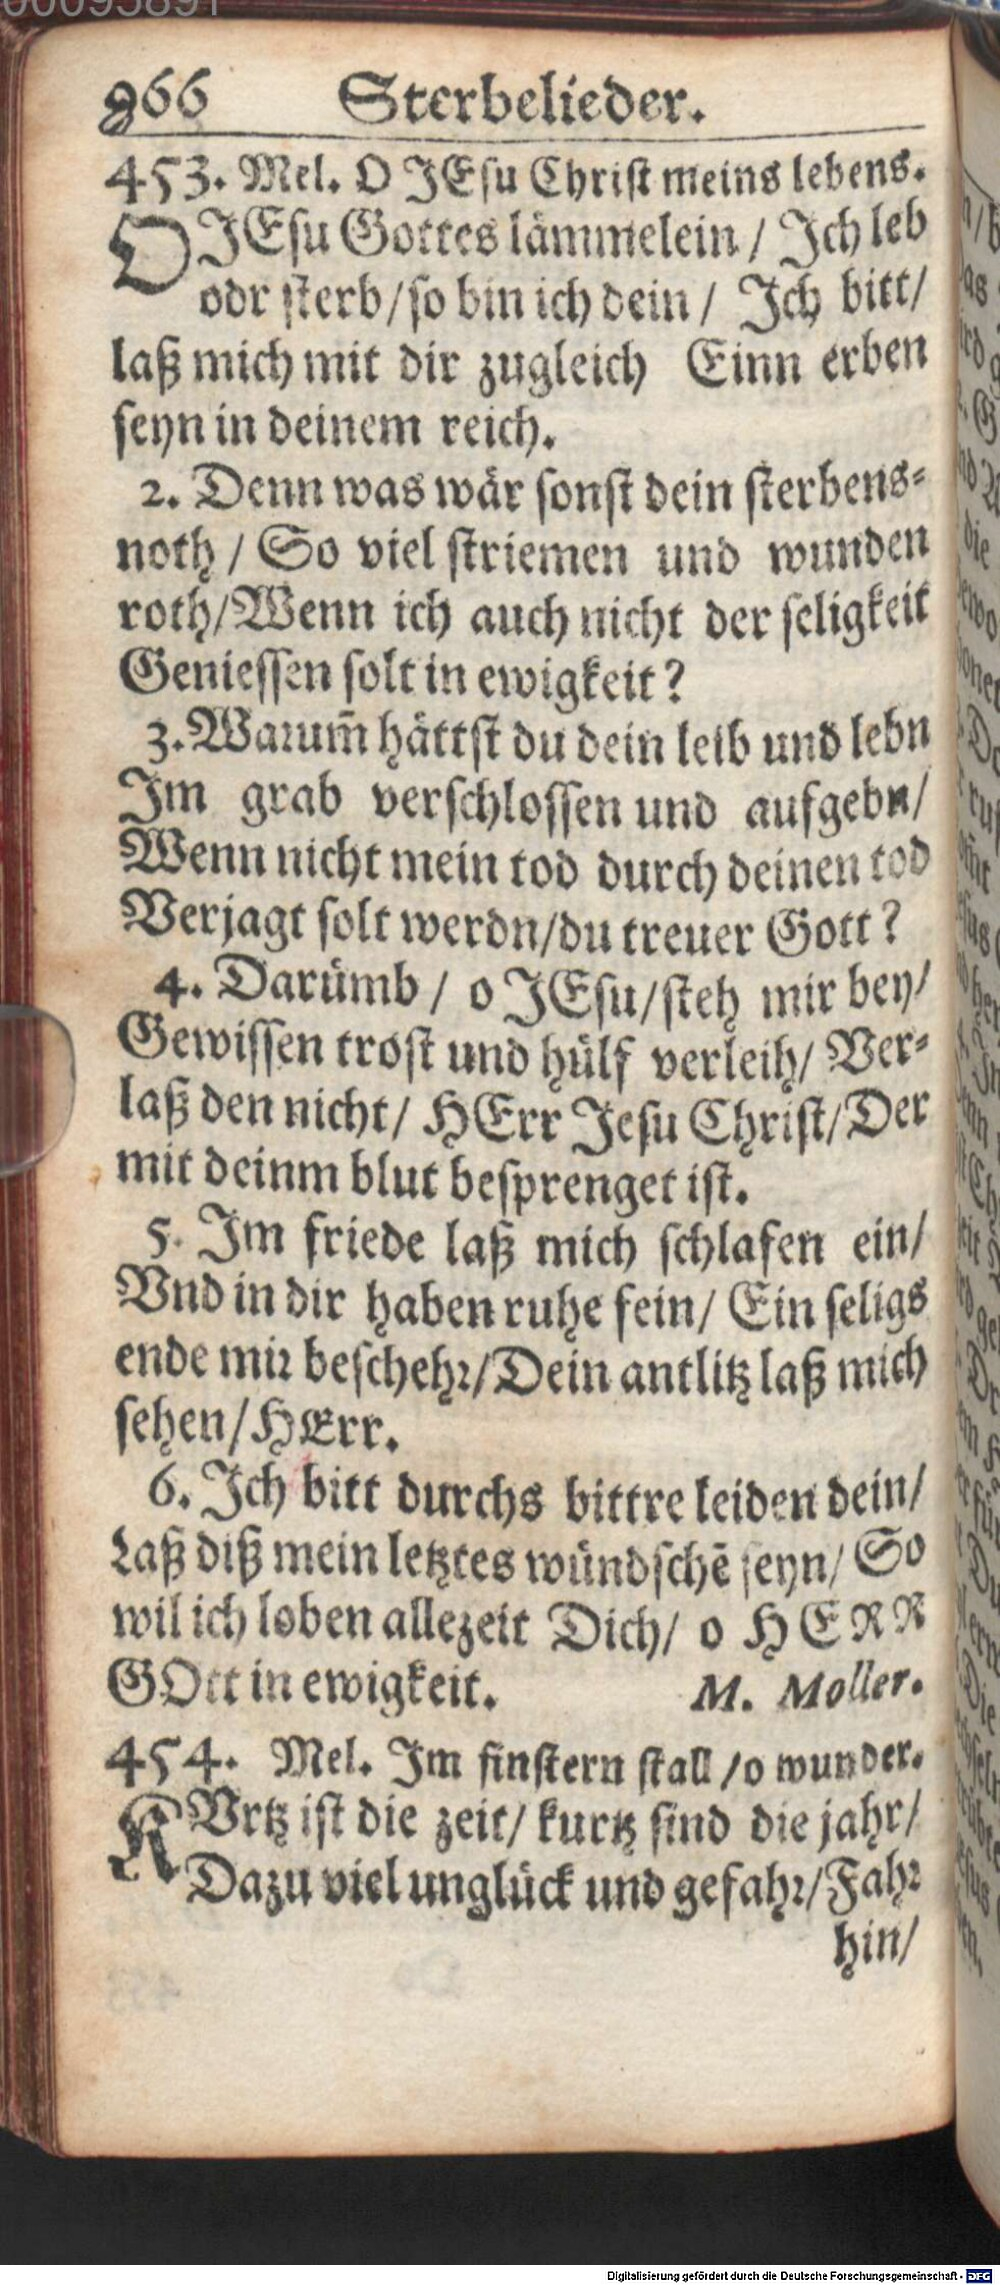 00095891
966 Sterbelieder.
453. Mel. O JEsu Christ meins lebens.
O JEsu Gottes lämmelein / Jch leb
odr sterb/so bin ich dein / Jch bitt/
laß mich mit dir zugleich Einn erben
seyn in deinem reich.
2. Denn was wär sonst dein sterbens-
noth / So viel striemen und wunden
roth/Wenn ich auch nicht der seligkeit
Geniessen solt in ewigkeit?
3. Warum̄ hättst du dein leib und lebn
Jm grab verschlossen und aufgebn/
Wenn nicht mein tod durch deinen tod
Verjagt solt werdn/du treuer Gott?
4. Darümb / o JEsu/steh mir bey/
Gewissen trost und hülf verleih/ Ver-
laß den nicht/ HErr Jesu Christ/Der
mit deinm blut besprenget ist.
5. Jm friede laß mich schlafen ein/
Vnd in dir haben ruhe fein/ Ein seligs
ende mir beschehr/Dein antlitz laß mich
sehen/HErr.
6. Jch bitt durchs bittre leiden dein/
Laß diß mein letztes wündschē seyn/ So
wil ich loben allezeit Dich/ o HERR
GOtt in ewigkeit. M. Moller.
454. Mel. Im finstern stall /o wunder.
KVrtz ist die zeit/ kurtz sind die jahr/
Dazu viel unglück und gefahr/Fahr
hin/
Digitalisierung gefördert durch die Deutsche Forschungsgemeinschaft - DFG